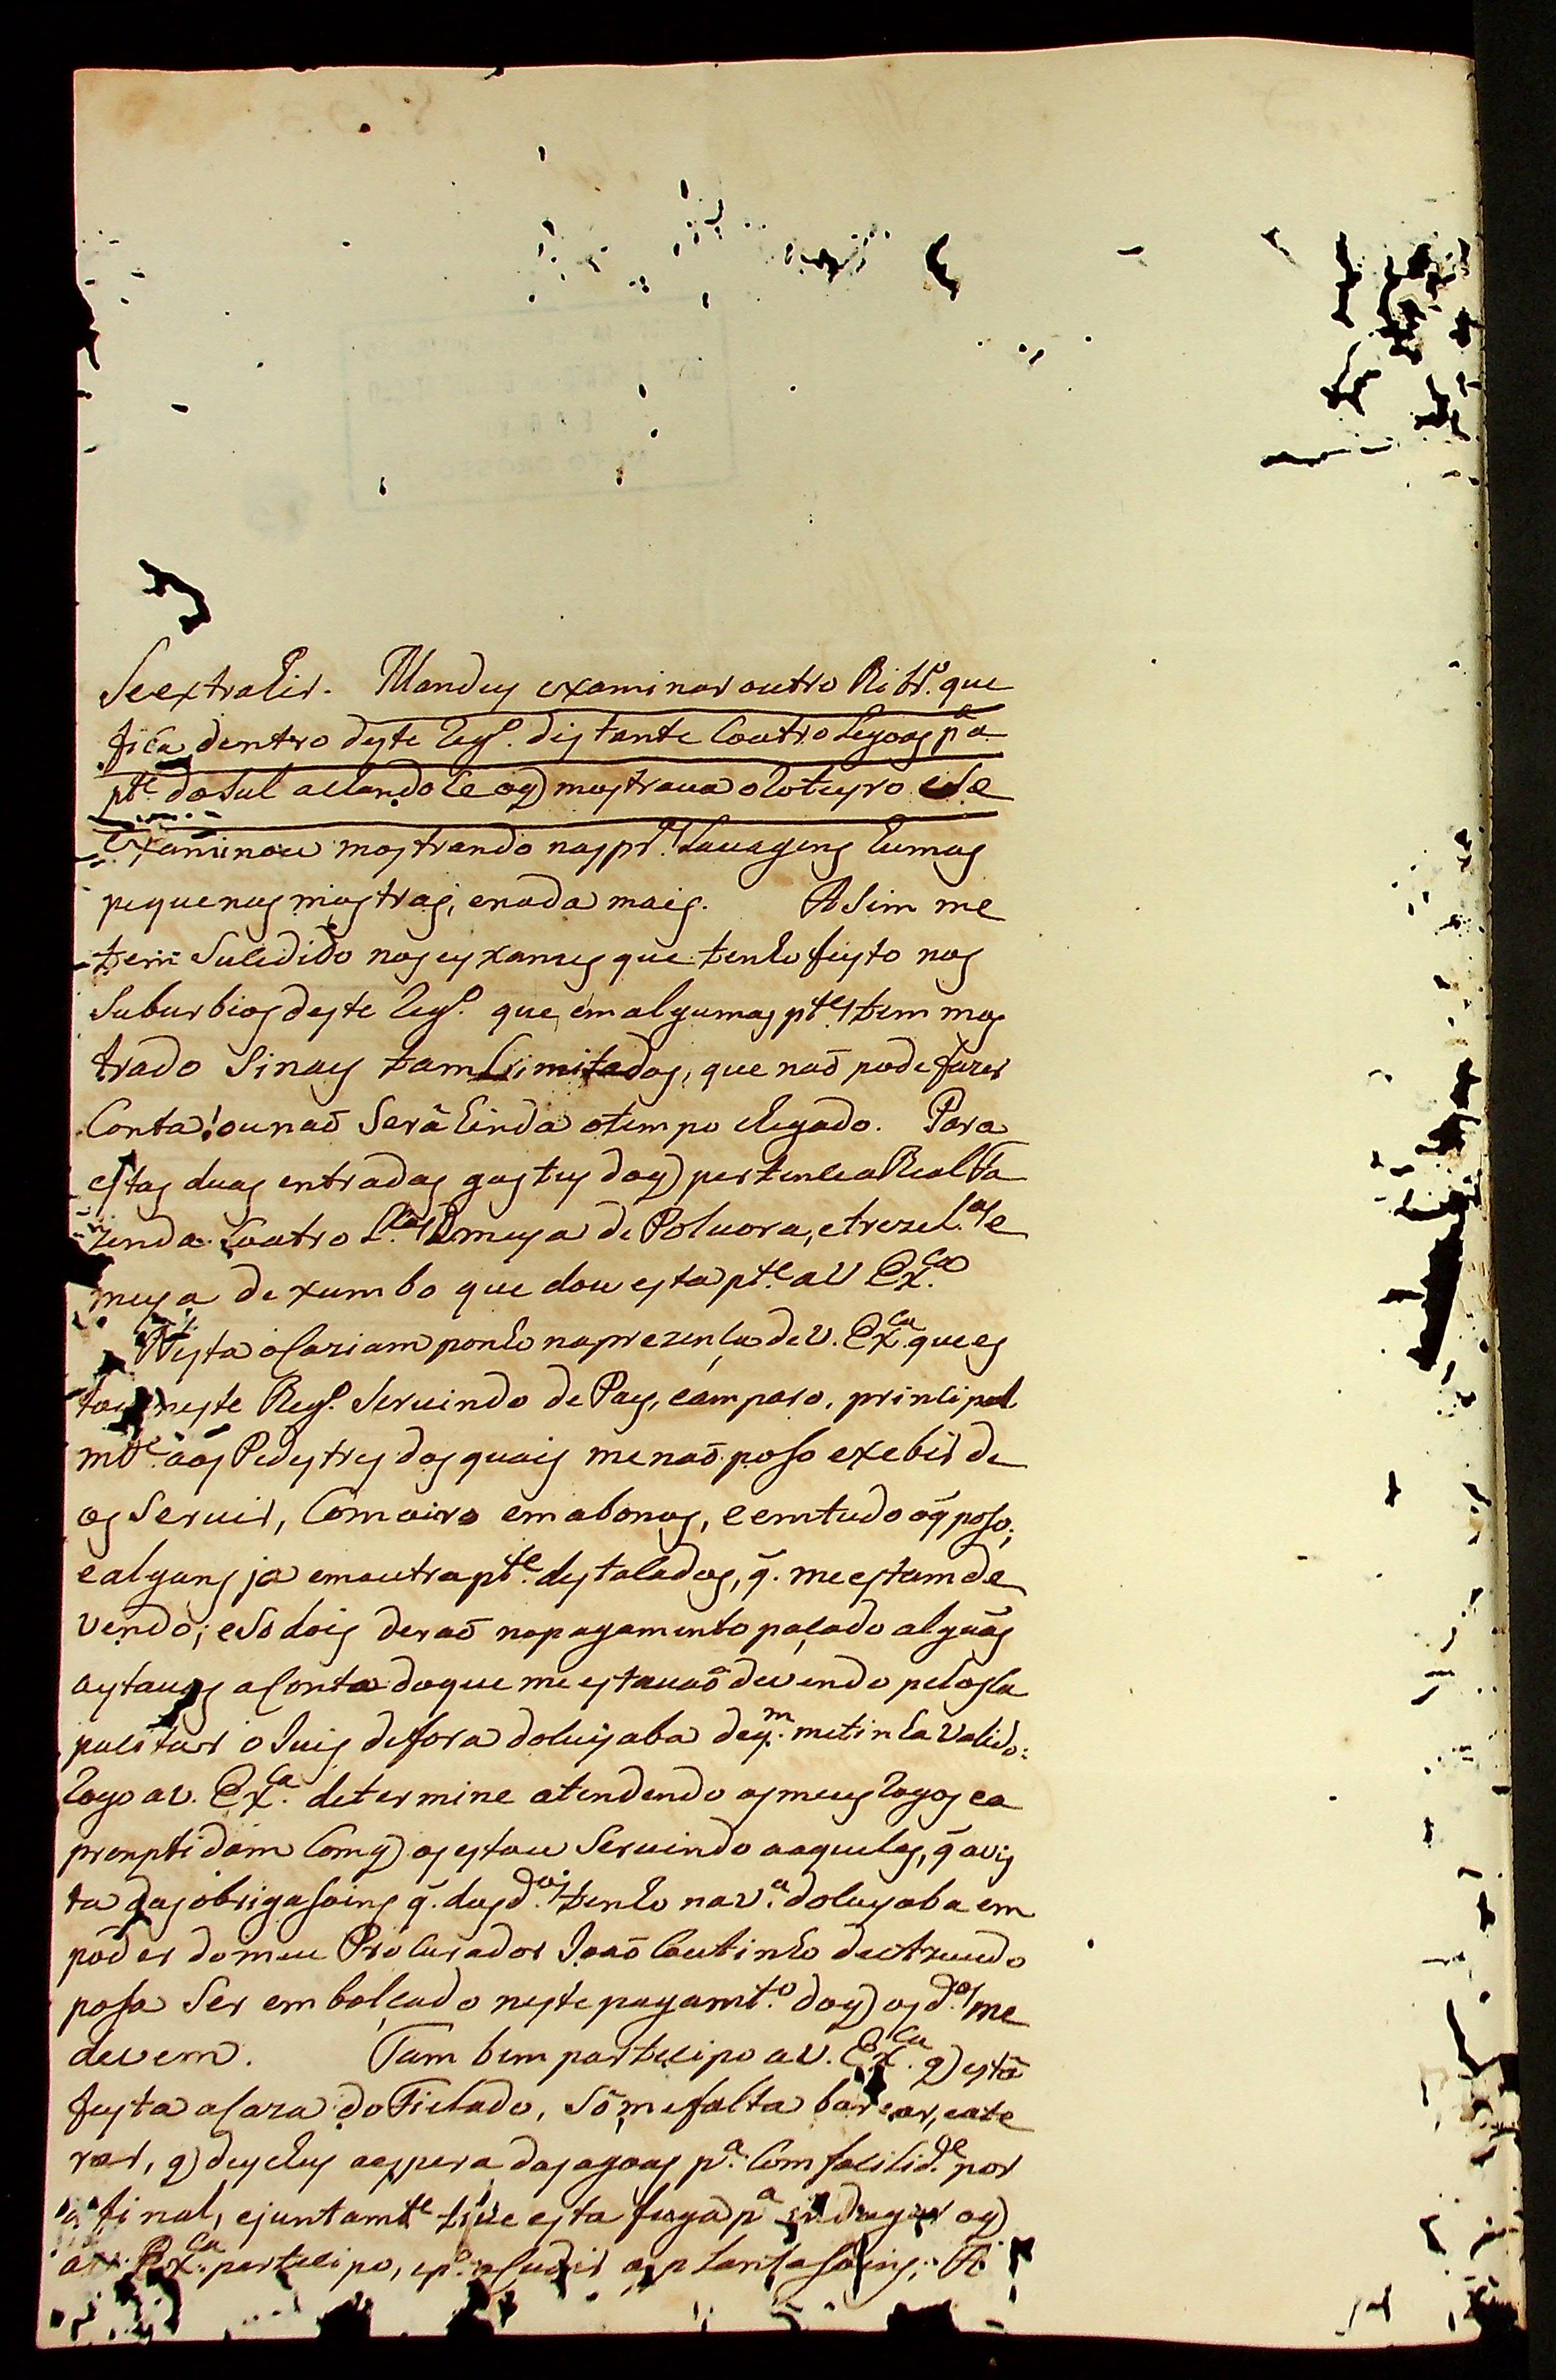 Se extrahir. Mandey examinar outro Ribr.º que
fica dentro deste Reg.º distante Coatro Legoas p.ª a
p.te do Sul achandoSe oq) mostraua o Roteyro eSe
examinou mostrando nas pr.as Lauagens humas
pequenas mostras, enada mais. ASim me
tem Sucedido nos eyxames que tenho feyto nos
Suburbios deste Reg.º que em algumas p.tes tem mos
trado Sinays tam Limitados, que naõ pode fazer
Conta! ou naõ Serâ hinda otempo chegado. Para
estas duas entradas gastey doq) pertence a Real Fa
zenda Coatro L.as e meya de Poluora, etreze L.as e
meya de xumbo que dou esta p.te a V Ex.ca
Nesta ocaziam ponho na prezença de V. Ex.ca que es
tou neste Reg.º Seruindo de Pay, e amparo, principal
m.te aos Pedestres dos quais me naõ poso exebir de
os Seruir, Com oiro em abonos, e em tudo oq̃ poso;
e alguns ja em outra p.te destacados, q̃. me estam de
vendo; e So dois deraõ no pagamento paçado alguãs
oytauas a Conta do que me estauaõ devendo pelos ca
pacitar o Juis de fora do Cuyaba de q.m me tinha Valido:
Rogo a V. Ex.ca determine atendendo os meus Rogos e a
promptidam Com q) os estou Seruindo a aqueles, q̃ a vis
ta das obrigasoins q̃. dos d.os tenho na V.ª do Cuyaba em
poder do meu Procurador Joaõ Coutinho de Azeuedo
posa Ser embolçado neste pagam.to doq) os d.os me
devem. Tam bem partecipo a V. Ex.ca q) estâ
feyta a Caza do Fichado, Sô me falta barear, e ate
rar, q) deychey a espera das agoas p.ª Com facilid.e por
a final, e juntam.te tiue esta fuga p.ª oq)
a V. Ex.ca partecipo, e p.ª acudir as plantasoins; A